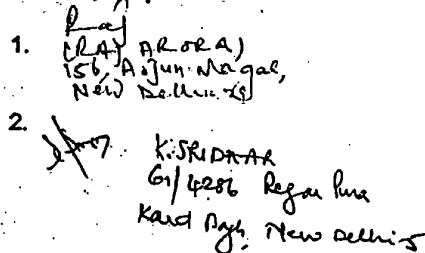 1. Raj
(RAJ ARORA)
156, Arjun Nagar,
New Delhi 29
2. K. SRIDHAR
61/4286 Regar Pura
Karol Bagh, New Delhi-5